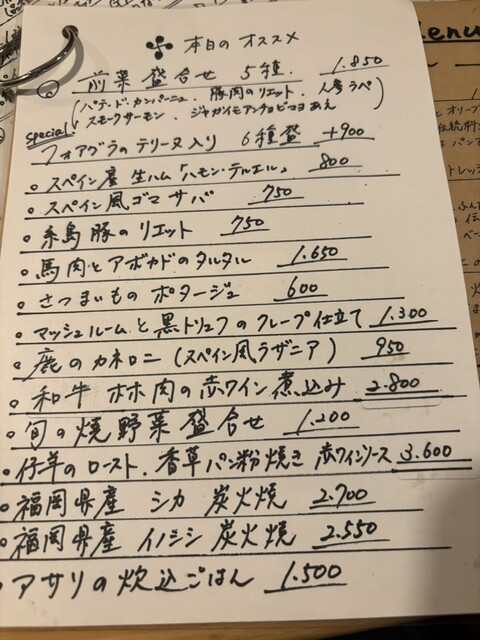 本日のオススメ
前菜盛合せ 5種. 1.850
(パテ・ド・カンパーニュ、豚肉のリエット、人参ラペ
スモークサーモン、ジャガイモアンチョビマヨあえ)
special!
フォアグラのテリーヌ入り 6種盛 +900
スペイン産 生ハム「ハモン・テルエル」 800
スペイン風ゴマサバ 750
糸島豚のリエット 750
馬肉とアボカドのタルタル 1.650
さつまいものポタージュ 600
マッシュルームと黒トリュフのクレープ仕立て 1.300
鹿のカネロニ(スペイン風ラザニア) 950
和牛ホホ肉の赤ワイン煮込み 2.800
旬の焼野菜盛合せ 1.200
仔羊のロースト、香草パン粉焼き 赤ワインソース 3.600
福岡県産 シカ 炭火焼 2.700
福岡県産 イノシシ 炭火焼 2.550
アサリの炊込ごはん 1.500
Menu